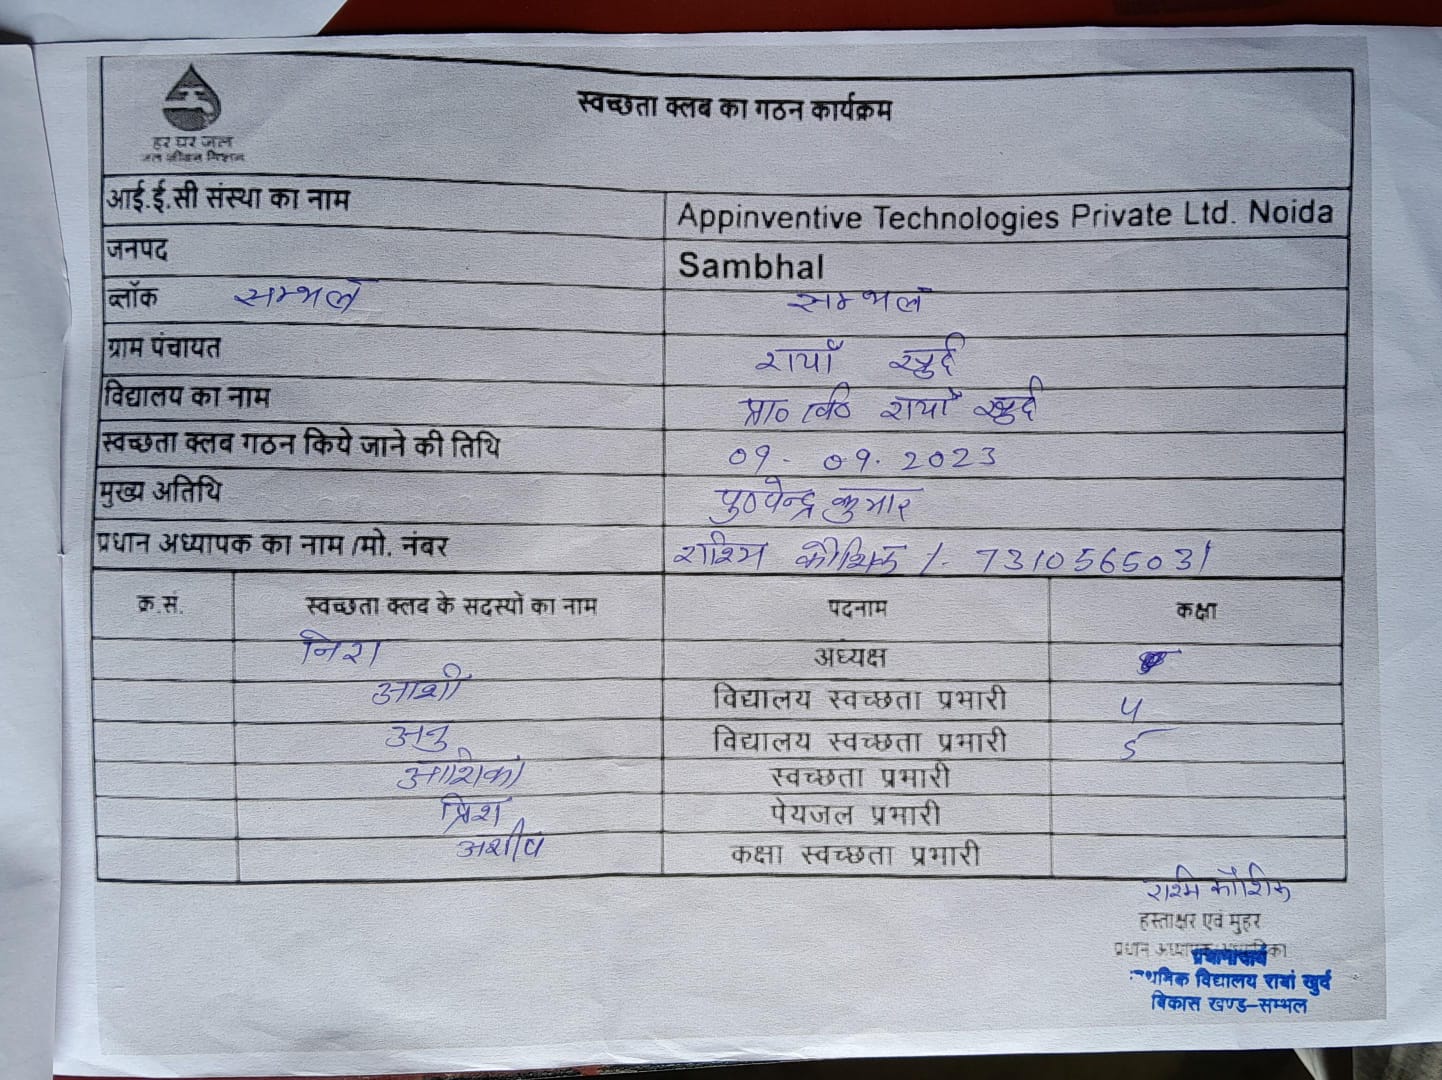 स्वच्छता क्लब का गठन कार्यक्रम
हर घर जल
जल जीवन मिशन
आई.ई.सी संस्था का नाम Appinventive Technologies Private Ltd. Noida
जनपद Sambhal
ब्लॉक सम्भल सम्भल
ग्राम पंचायत रायाँ खुर्द
विद्यालय का नाम प्रा० वि० रायाँ खुर्द
स्वच्छता क्लब गठन किये जाने की तिथि 09. 09.2023
मुख्य अतिथि कुमार
प्रधान अध्यापक का नाम /मो. नंबर राश्मि कौशिक /- 7310565031
क्र.सं. स्वच्छता क्लब के सदस्यों का नाम पदनाम कक्षा
अध्यक्ष
आशी विद्यालय स्वच्छता प्रभारी 4
अनु विद्यालय स्वच्छता प्रभारी 5
आशिका स्वच्छता प्रभारी
पेयजल प्रभारी
कक्षा स्वच्छता प्रभारी
राश्मि कौशिक
हस्ताक्षर एवं मुहर
प्रधान
प्रधानाचार्य
विद्यालय रायां खुर्द
विकास खण्ड-सम्भल